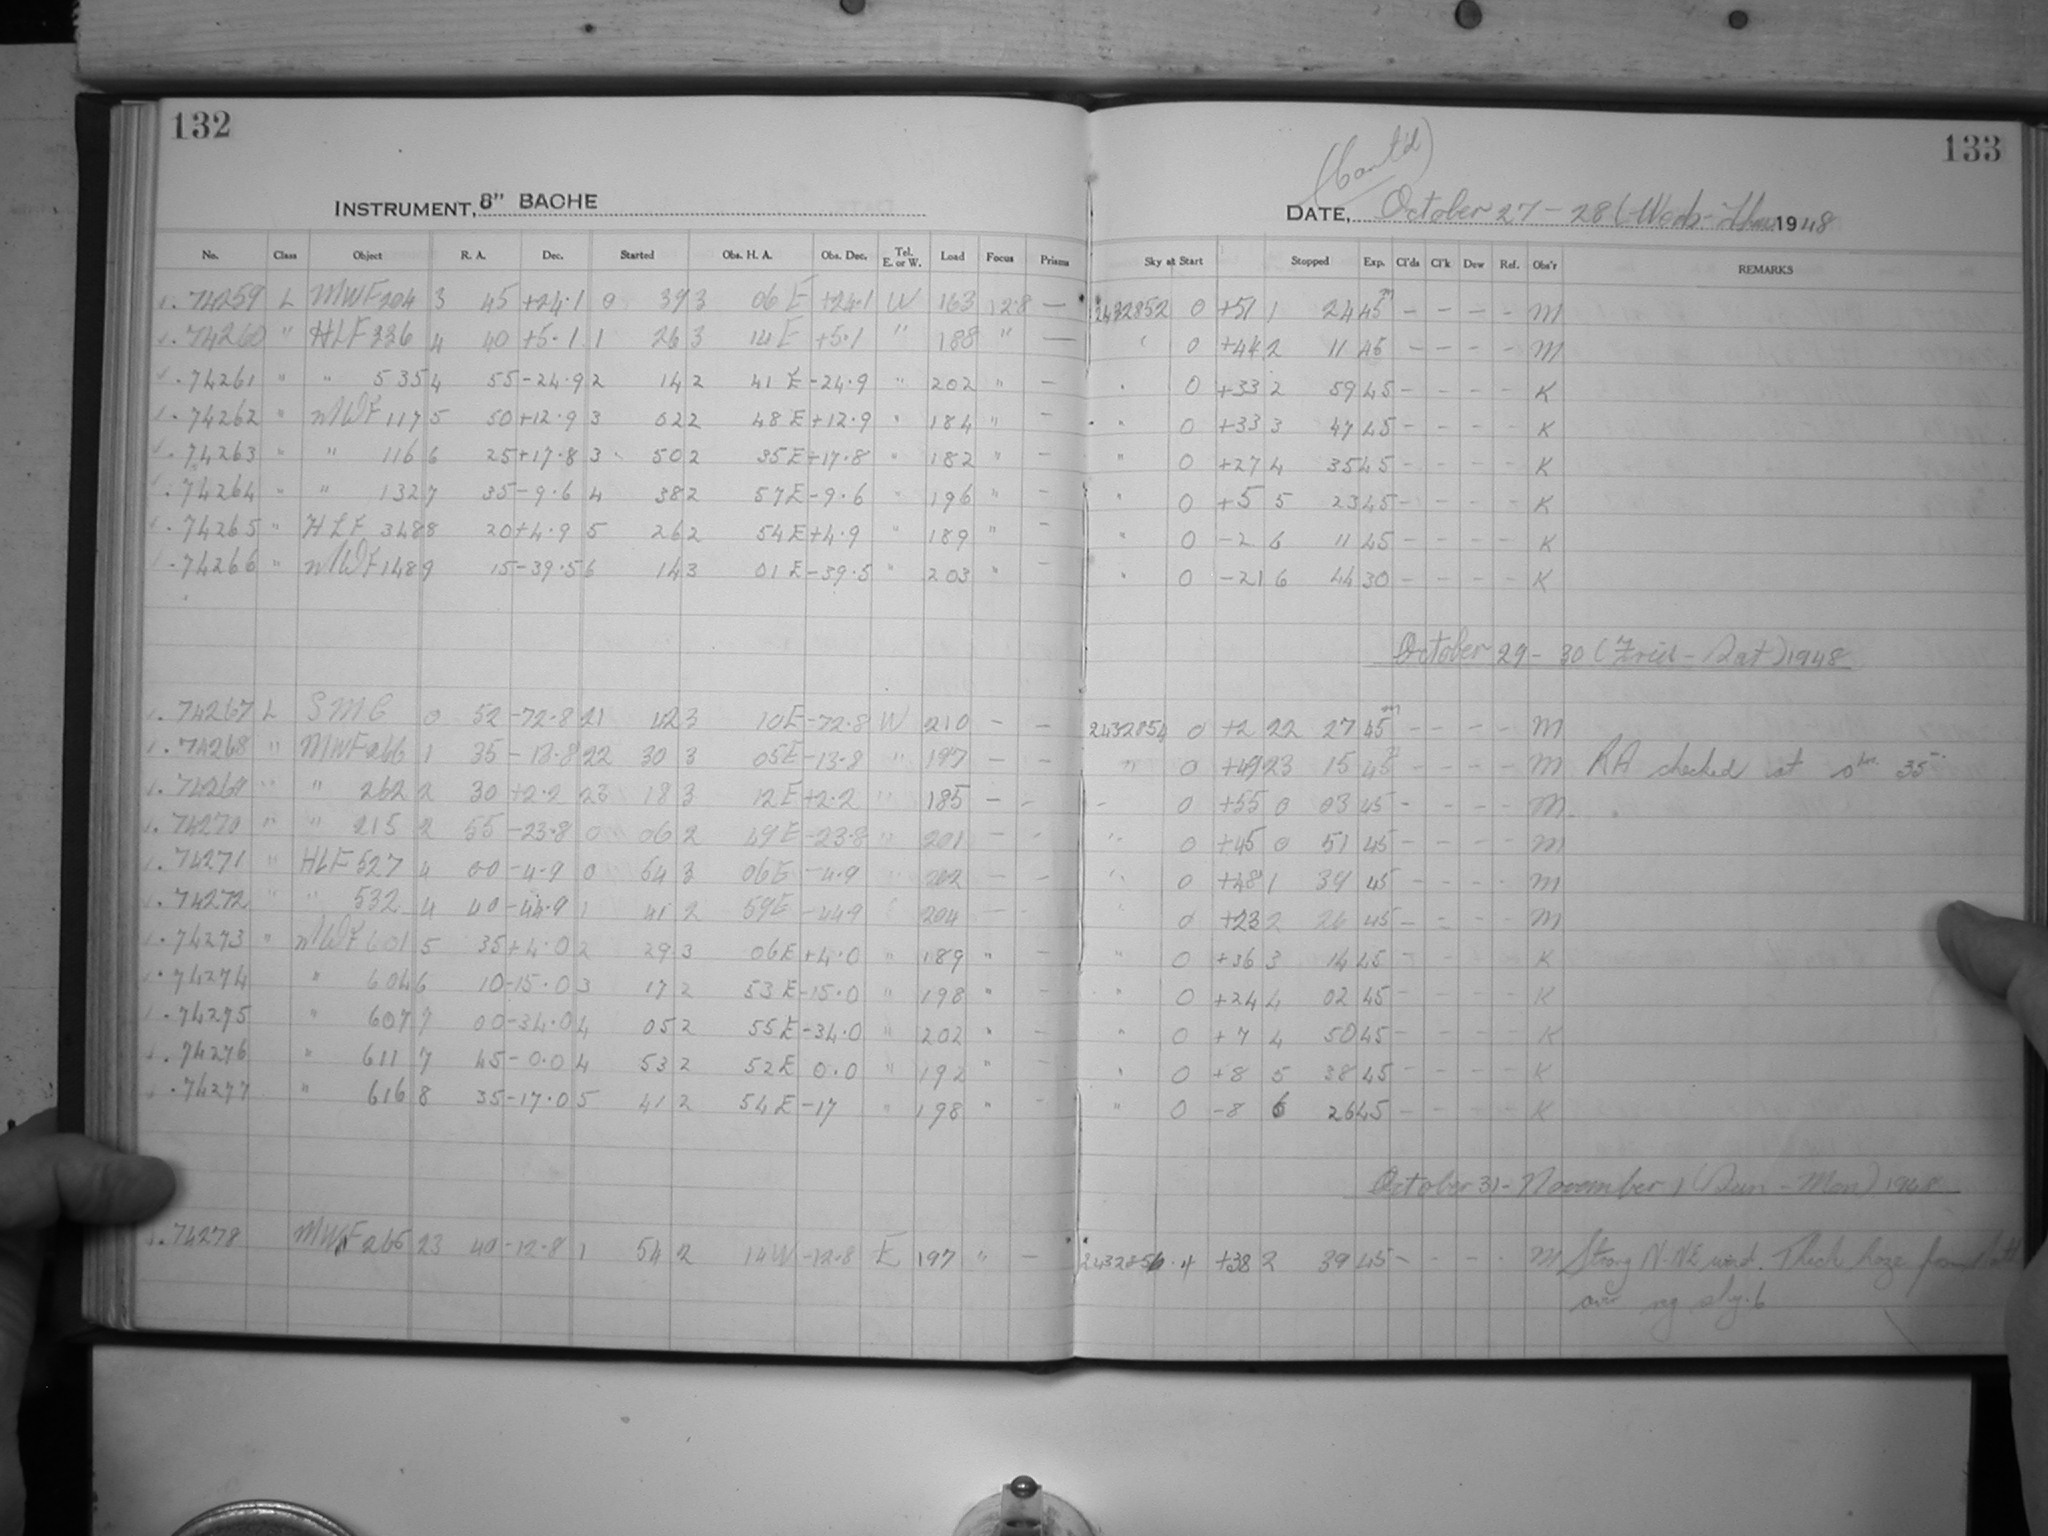 132
133
INSTRUMENT, 8" BACHE
(Cont'd)
DATE, October 27 - 28 (Weds - Thurs 1948
No. Class Object R. A. Dec. Started Obs. H. A. Obs. Dec. Tel. E. or W. Load Focus Prisms Sky at Start Stopped Exp. Cl'ds Cl'k Dew Ref. Obs'r REMARKS
74259 L MWF 204 3 45 +24.1 0 39 3 06 E +24.1 W 163 12.8 — 2432852 0 +51 1 24 45m - - - - M
74260 " HLF 336 4 40 +5.1 1 26 3 14 E +5.1 " 188 " — " 0 +44 2 11 45 - - - - M
74261 " " 535 4 55 -24.9 2 14 2 41 E -24.9 " 202 " - " 0 +33 2 59 45 - - - - K
74262 " MWF 117 5 50 +12.9 3 02 2 48 E +12.9 " 184 " - " 0 +33 3 47 45 - - - - K
74263 " " 116 6 25 +17.8 3 50 2 35 E +17.8 " 182 " - " 0 +27 4 35 45 - - - - K
74264 " " 132 7 35 -9.6 4 38 2 57 E -9.6 " 196 " - " 0 +5 5 23 45 - - - - K
74265 " HLF 348 8 20 +4.9 5 26 2 54 E +4.9 " 189 " - " 0 -2 6 11 45 - - - - K
74266 " MWF 148 9 15 -39.5 6 14 3 01 E -39.5 " 203 " - " 0 -21 6 44 30 - - - - K
October 29 - 30 (Frid - Sat) 1948
74267 L SMC 0 52 -72.8 21 42 3 10 E -72.8 W 210 - - 2432854 0 +2 22 27 45m - - - - M
74268 " MWF 266 1 35 -13.8 22 30 3 05 E -13.8 " 197 - - " 0 +49 23 15 45 - - - - M RA checked at 0hr 35
74269 " " 262 2 30 +2.2 23 18 3 12 E +2.2 " 185 - - - 0 +55 0 03 45 - - - - M
74270 " " 215 2 55 -23.8 0 06 2 49 E -23.8 " 201 - - " 0 +45 0 51 45 - - - - M
74271 " HLF 527 4 00 -4.9 0 54 3 06 E -4.9 " 202 - - " 0 +48 1 39 45 - - - - M
74272 " " 532 4 40 -44.9 1 41 2 59 E -44.9 " 204 - - " 0 +23 2 26 45 - - - - M
74273 " MWF 601 5 35 +4.0 2 29 3 06 E +4.0 " 189 " - " 0 +36 3 14 45 - - - - K
74274 " 604 6 10 -15.0 3 17 2 53 E -15.0 " 198 " - " 0 +24 4 02 45 - - - - K
74275 " 607 7 00 -34.0 4 05 2 55 E -34.0 " 202 " - " 0 +7 4 50 45 - - - - K
74276 " 611 7 45 -0.0 4 53 2 52 E 0.0 " 192 " - " 0 +8 5 38 45 - - - - K
74277 " 616 8 35 -17.0 5 41 2 54 E -17 " 198 " - " 0 -8 6 26 45 - - - - K
October 31 - November 1 (Sun - Mon) 1948
74278 MWF 265 23 40 -12.8 1 54 2 14 W -12.8 E 197 " - 2432856 .4 +38 2 39 45 - - - - M Strong N-NE wind. Thick haze
over sky. 6